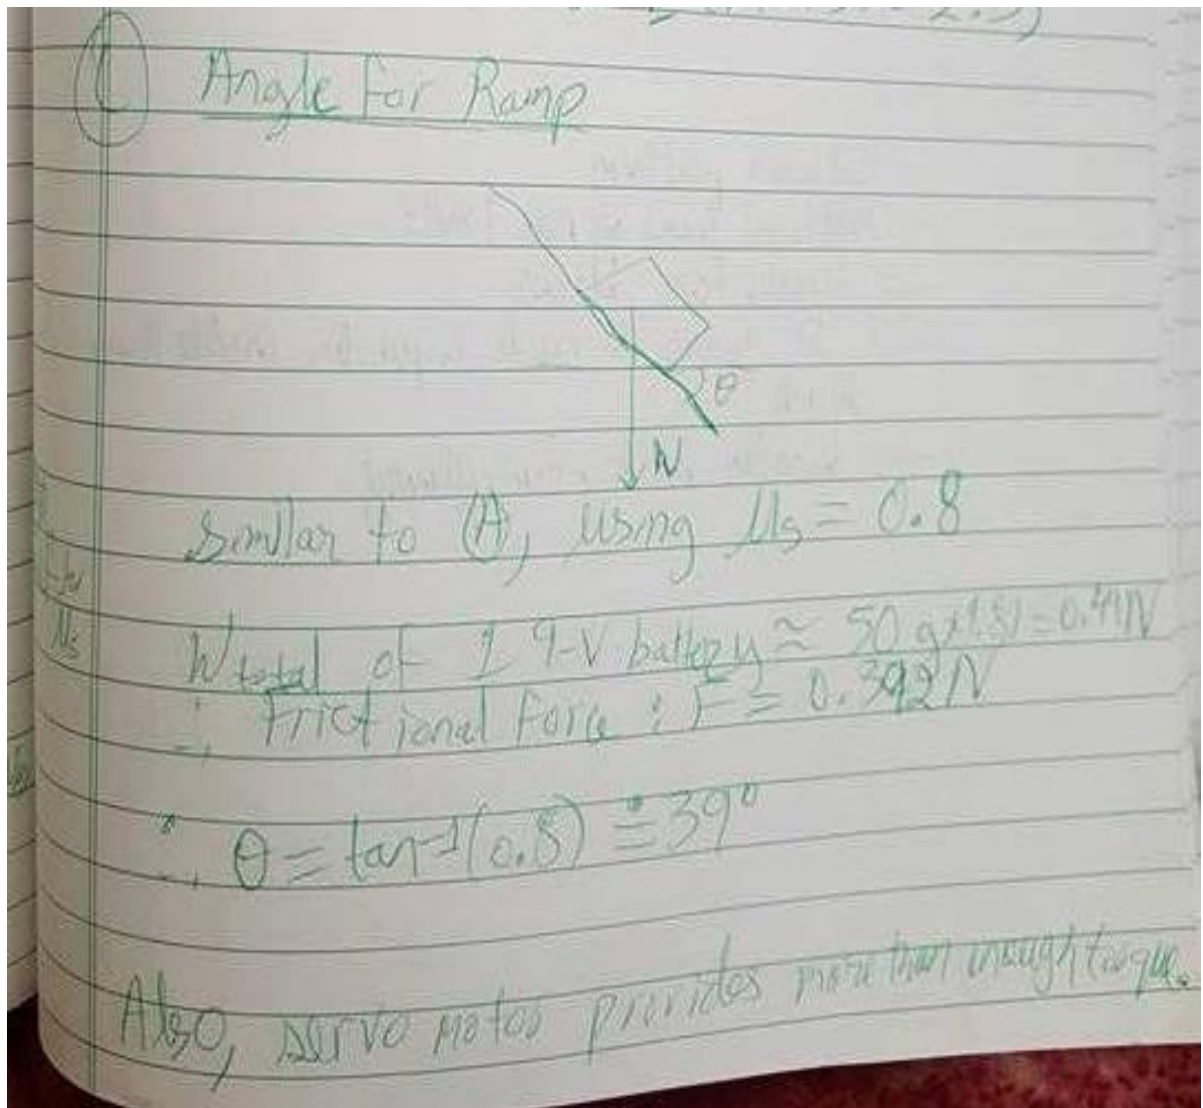 C Angle For Ramp
θ
W
Similar to (A), using μs = 0.8
μs
Wtotal of 1 9-V battery ≈ 50 g x 9.81 = 0.49N
∴ Frictional Force : F = 0.392N
∴ θ = tan-1(0.8) ≐ 39°
Also, servo motor provides more than enough torque.